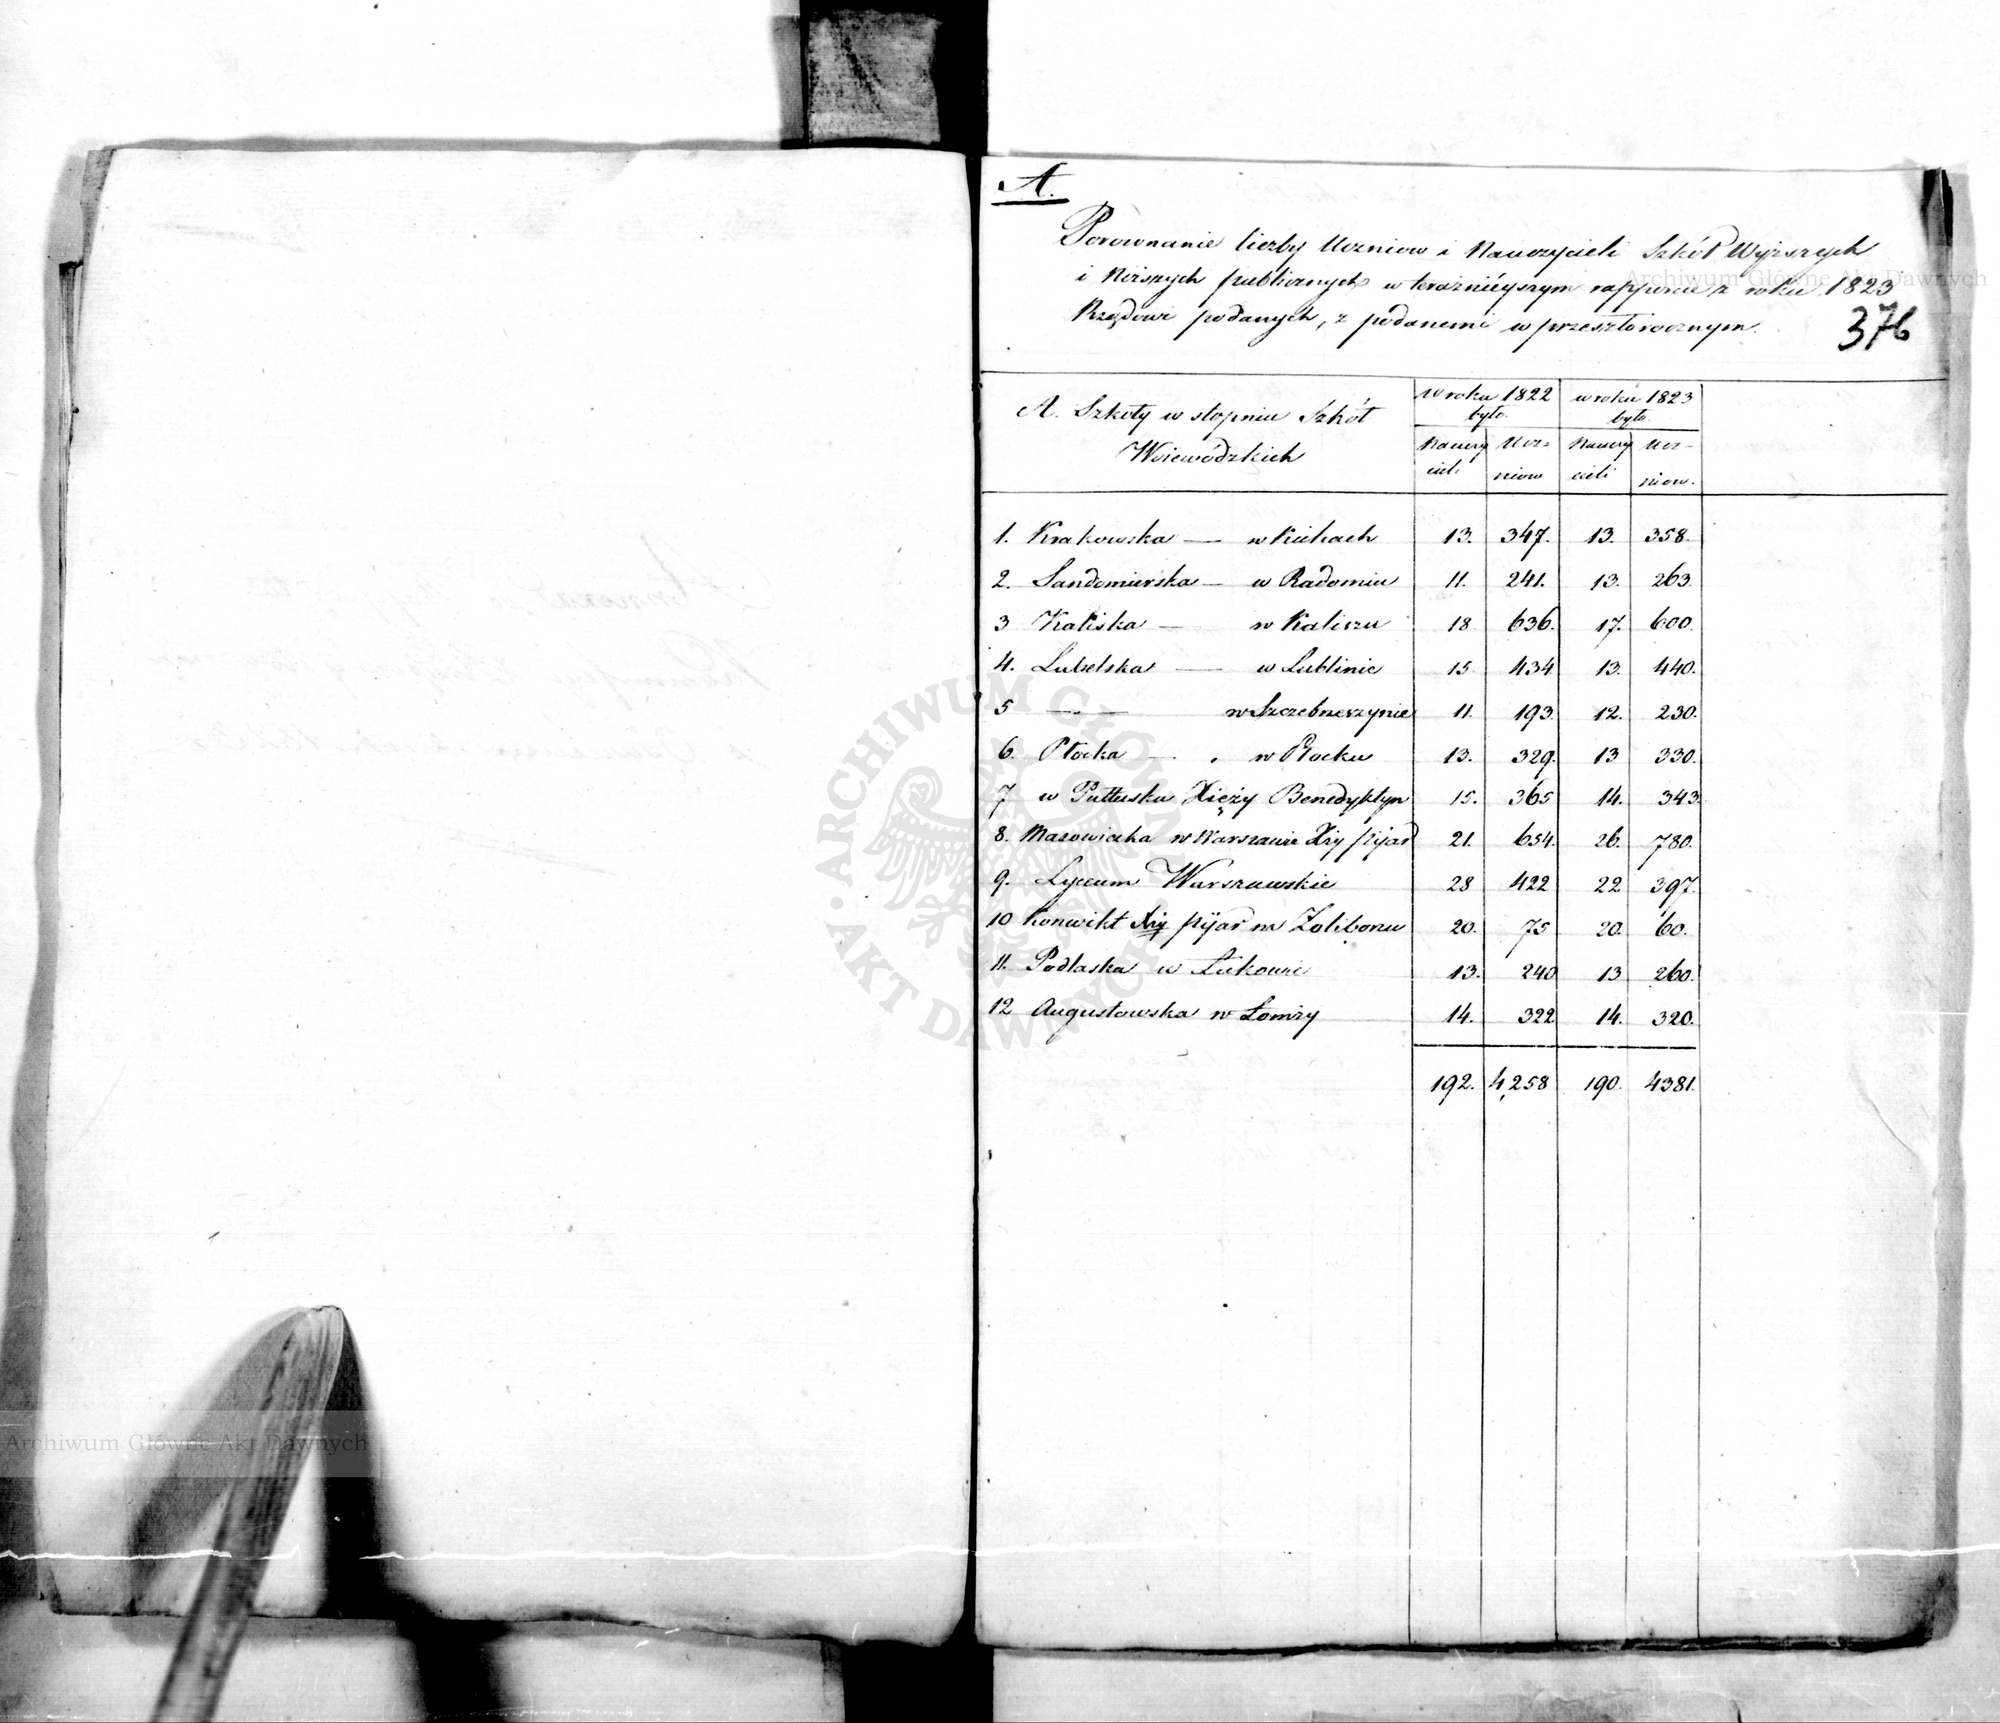 A.
Porownanie liczby Uczniow i Nauczycieli Szkół Wyższych
i Niższych publicznych w teraźnieyszym rapporcie z roku 1823
Rządowi podanych, z podanemi w przeszłorocznym.
376
A. Szkoły w stopniu Szkół
Woiewódzkich
w roku 1822 było. w roku 1823 było.
Nauczycieli Ucz=niow Nauczycieli Ucz=niow.
1. Krakowska — w Kielcach 13. 347. 13. 358.
2. Sandomierska — w Radomiu 11. 241. 13. 263.
3 Kaliska — w Kaliszu 18 636. 17. 600.
4. Lubelska — w Lublinie 15 434 13. 440.
5 — — w Szczebrzeszynie 11. 193. 12. 230.
6. Płocka — w Płocku 13. 329. 13 330.
7 w Pułtusku Xięży Benedyktyn 15. 365 14. 343.
8. Mazowiecka w Warszawie Xży Pijar 21. 654. 26. 780.
9. Lyceum Warszawskie 28 422 22 397.
10 Konwikt Xży Pijar na Zoliborzu 20. 75 20. 60.
11. Podlaska w Łukowie 13. 240 13 260.
12 Augustowska w Łomży 14. 322 14. 320.
192. 4,258 190. 4381.
Archiwum Główne Akt Dawnych
ARCHIWUM GŁÓWNE AKT DAWNYCH
Archiwum Główne Akt Dawnych